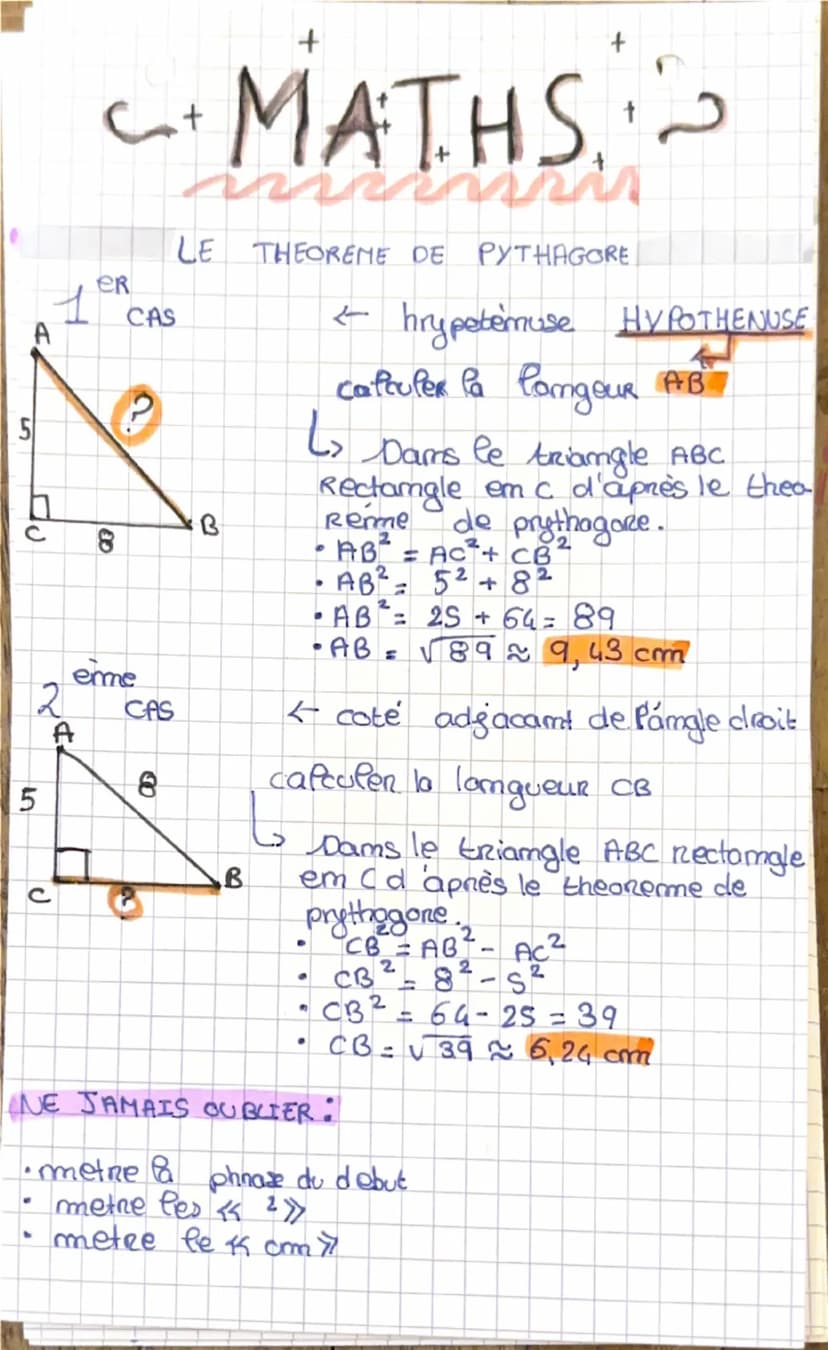 MATHS
LE THEOREME DE PYTHAGORE
1ER CAS
← hypoténuse HYPOTHENUSE
calculer la longeur AB
A
5
?
C
8
B
↳ Dans le triangle ABC
Rectangle en C d'après le theo
reme de pythagore.
• AB² = AC² + CB²
• AB² = 5² + 8²
• AB² = 25 + 64 = 89
• AB = √89 ≈ 9,43 cm
2ème CAS
← coté adjacant de l'angle droit
calculer la longueur CB
A
5
8
C
?
B
↳ Dans le triangle ABC rectangle
en C d'après le theoreme de
pythagore.
• CB² = AB² - AC²
• CB² = 8² - 5²
• CB² = 64 - 25 = 39
• CB = √39 ≈ 6,24 cm
NE JAMAIS OUBLIER :
• metre la phrase du debut
• metre les « ² »
• metre le « cm »